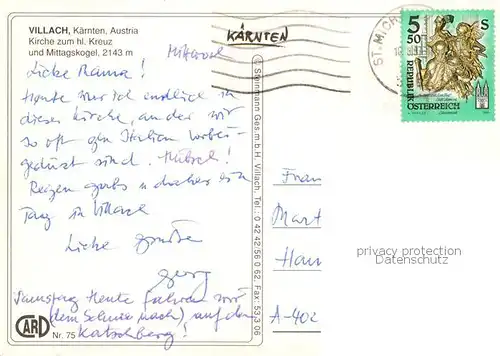 VILLACH, Kärnten, Austria
Kirche zum hl. Kreuz
und Mittagskogel, 2143 m
KÄRNTEN
Mittwoch
Liebe Mama!
Heute war ich endlich in
dieser Kirche, an der wir
so oft gen Italien vorbei-
gedüst sind. Hübsch!
Regen gabs nachher ein
Tag in Villach
Liebe Grüße
Georg
Samstag Heute fahren wir
(dem Schnee nach) auf den
Katschberg!
CARD
Nr. 75
© Steinmann Ges.m.b.H. Villach, Tel.: 0 42 42/56 0 62, Fax: 53 3 06
ST. MICH
5 50 S
REPUBLIK
ÖSTERREICH
Frau
Mart
Han
A-402
privacy protection
Datenschutz